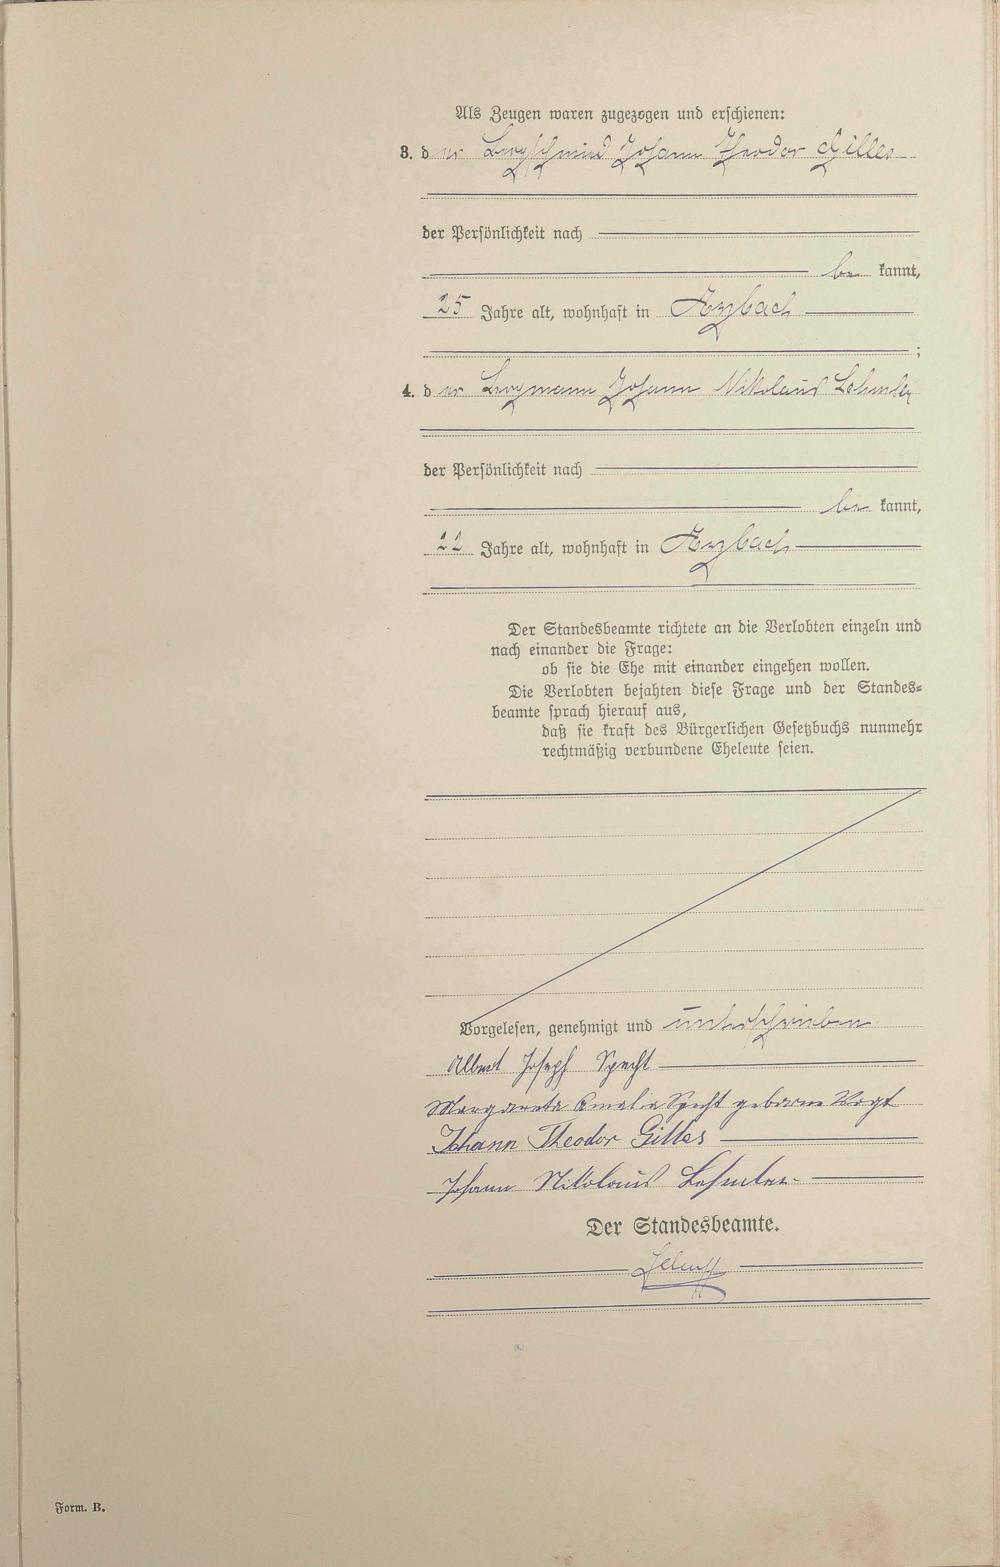 Als Zeugen waren zugezogen und erschienen:
3. der Bergschmied Johann Theodor Gilles
der Persönlichkeit nach
be kannt,
25 Jahre alt, wohnhaft in Arzbach
;
4. der Bergmann Johann Nikolaus Lehmler
der Persönlichkeit nach
be kannt,
22 Jahre alt, wohnhaft in Arzbach
Der Standesbeamte richtete an die Verlobten einzeln und
nach einander die Frage:
ob sie die Ehe mit einander eingehen wollen.
Die Verlobten bejahten diese Frage und der Standes-
beamte sprach hierauf aus,
daß sie kraft des Bürgerlichen Gesetzbuchs nunmehr
rechtmäßig verbundene Eheleute seien.
Vorgelesen, genehmigt und unterschrieben
Albert Joseph Specht
Margareta Amalia Specht geborene Vogt
Johann Theodor Gilles
Johann Nikolaus Lehmler
Der Standesbeamte.
Form. B.